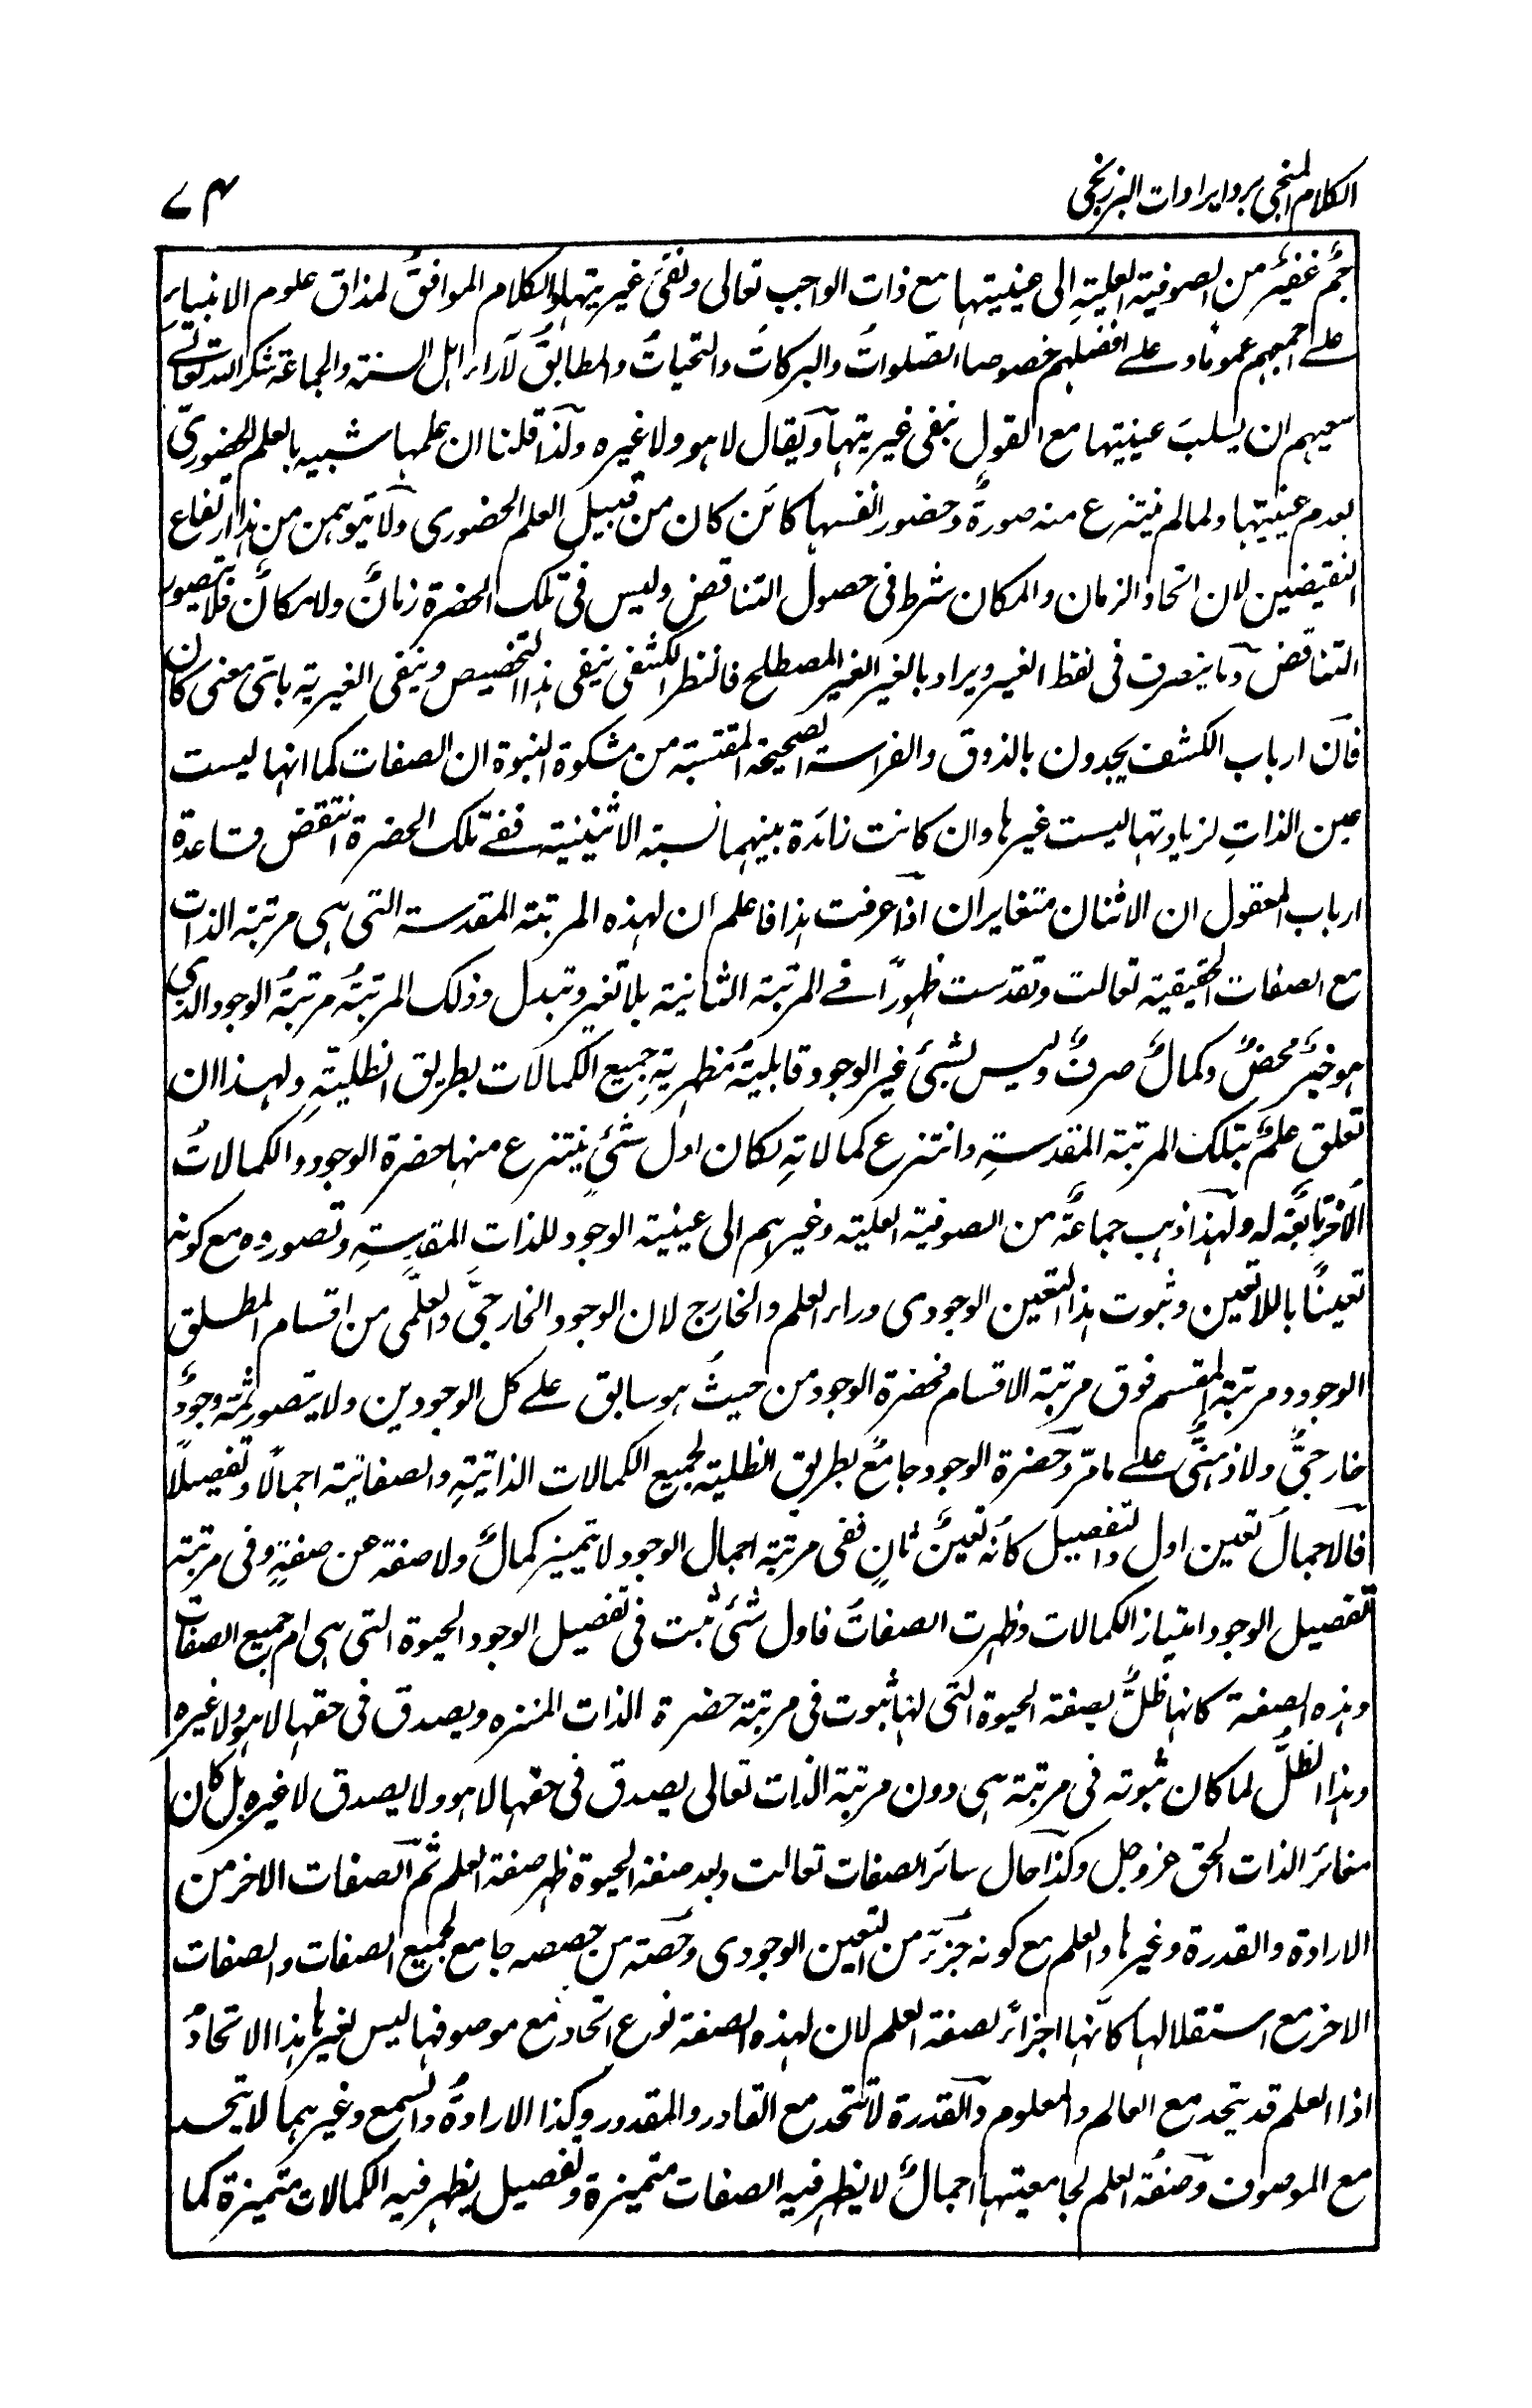 الكلام المنجى برد ايرادات البرزنجى
٧٤
جم غفير من الصوفية العلية الى عينيتها مع ذات الواجب تعالى ونفى غيريتها والكلام الموافق لمذاق علوم الانبياء
على اجمعهم عموما وعلى افضلهم خصوصا الصلوات والبركات والتحيات والمطابق لآراء اهل السنة والجماعة شكر الله تعالى
سعيهم ان يسلب عينيتها مع القول بنفى غيريتها ويقال لا هو ولا غيره ولذا قلنا ان علمها شبيه بالعلم الحضورى
لعدم عينيتها ولما لم ينتزع منه صورة وحضور انفسها كائن كان من قبيل العلم الحضورى ولا يتوهمن من هذا ارتفاع
النقيضين لان اتحاد الزمان والمكان شرط فى حصول التناقض وليس فى تلك الحضرة زمان ولا مكان فلا يتصور
التناقض وما يتصرف فى لفظ الغير ويراد بالغير الغير المصطلح فالنظر الكشفى ينفى هذا التخصيص وينفى الغيرية باى معنى كان
فان ارباب الكشف يجدون بالذوق والفراسة الصحيحة المقتبسة من مشكوة النبوة ان الصفات كما انها ليست
عين الذات لزيادتها ليست غيرها وان كانت زائدة بينهما نسبة الاثنينية ففى تلك الحضرة انتقض قاعدة
ارباب المعقول ان الاثنان متغايران اذا عرفت هذا فاعلم ان لهذه المرتبة المقدسة التى هى مرتبة الذات
مع الصفات الحقيقية تعالت وتقدست ظهورا فى المرتبة الثانية بلا تغير وتبدل وذلك المرتبة مرتبة الوجود الذى
هو خير محض وكمال صرف وليس لشئ غير الوجود قابلية مظهرية جميع الكمالات بطريق الظلية ولهذا ان
تعلق علم بتلك المرتبة المقدسة وانتزع كمالاته لكان اول شئ ينتزع منها حضرة الوجود والكمالات
الاخر تابعة له ولهذا ذهب جماعة من الصوفية العلية وغيرهم الى عينية الوجود للذات المقدسة وتصوروه مع كونه
تعينا باللاتعين وثبوت هذا التعين الوجودى وراء العلم والخارج لان الوجود الخارجى والعلمى من اقسام المطلق
الوجود ومرتبة المقسم فوق مرتبة الاقسام فحضرة الوجود من حيث هو سابق على كل الوجودين ولا يتصور ثمة وجود
خارجى ولا ذهنى على ما مر وحضرة الوجود جامع بطريق الظلية لجميع الكمالات الذاتية والصفاتية اجمالا وتفصيلا
فالاجمال تعين اول والتفصيل كانه تعين ثان ففى مرتبة اجمال الوجود لا يتميز كمال ولا صفة عن صفة وفى مرتبة
تفصيل الوجود امتياز الكمالات وظهرت الصفات فاول شئ ثبت فى تفصيل الوجود الحيوة التى هى ام جميع الصفات
وهذه الصفة كانها ظل بصفة الحيوة التى لها ثبوت فى مرتبة حضرة الذات المنزه ويصدق فى حقها لا هو ولا غيره
وهذا الظل لما كان ثبوته فى مرتبة هى دون مرتبة الذات تعالى يصدق فى حقها لا هو ولا يصدق لا غيره بل كان
مغائر الذات الحق عز وجل وكذا حال سائر الصفات تعالت وبعد صفة الحيوة ظهر صفة العلم ثم الصفات الاخر من
الارادة والقدرة وغيرها والعلم مع كونه جزء من التعين الوجودى وحصة من حصصه جامع لجميع الصفات والصفات
الاخر مع استقلالها كانها اجزاء لصفة العلم لان لهذه الصفة نوع اتحاد مع موصوفها ليس لغيرها هذا الاتحاد
اذا العلم قد يتحد مع العالم والمعلوم والقدرة لا تتحد مع القادر والمقدور وكذا الارادة والسمع وغيرهما لا يتحد
مع الموصوف وصفة العلم لجامعيتها اجمال لا يظهر فيه الصفات متميزة وتفصيل يظهر فيه الكمالات متميزة كما